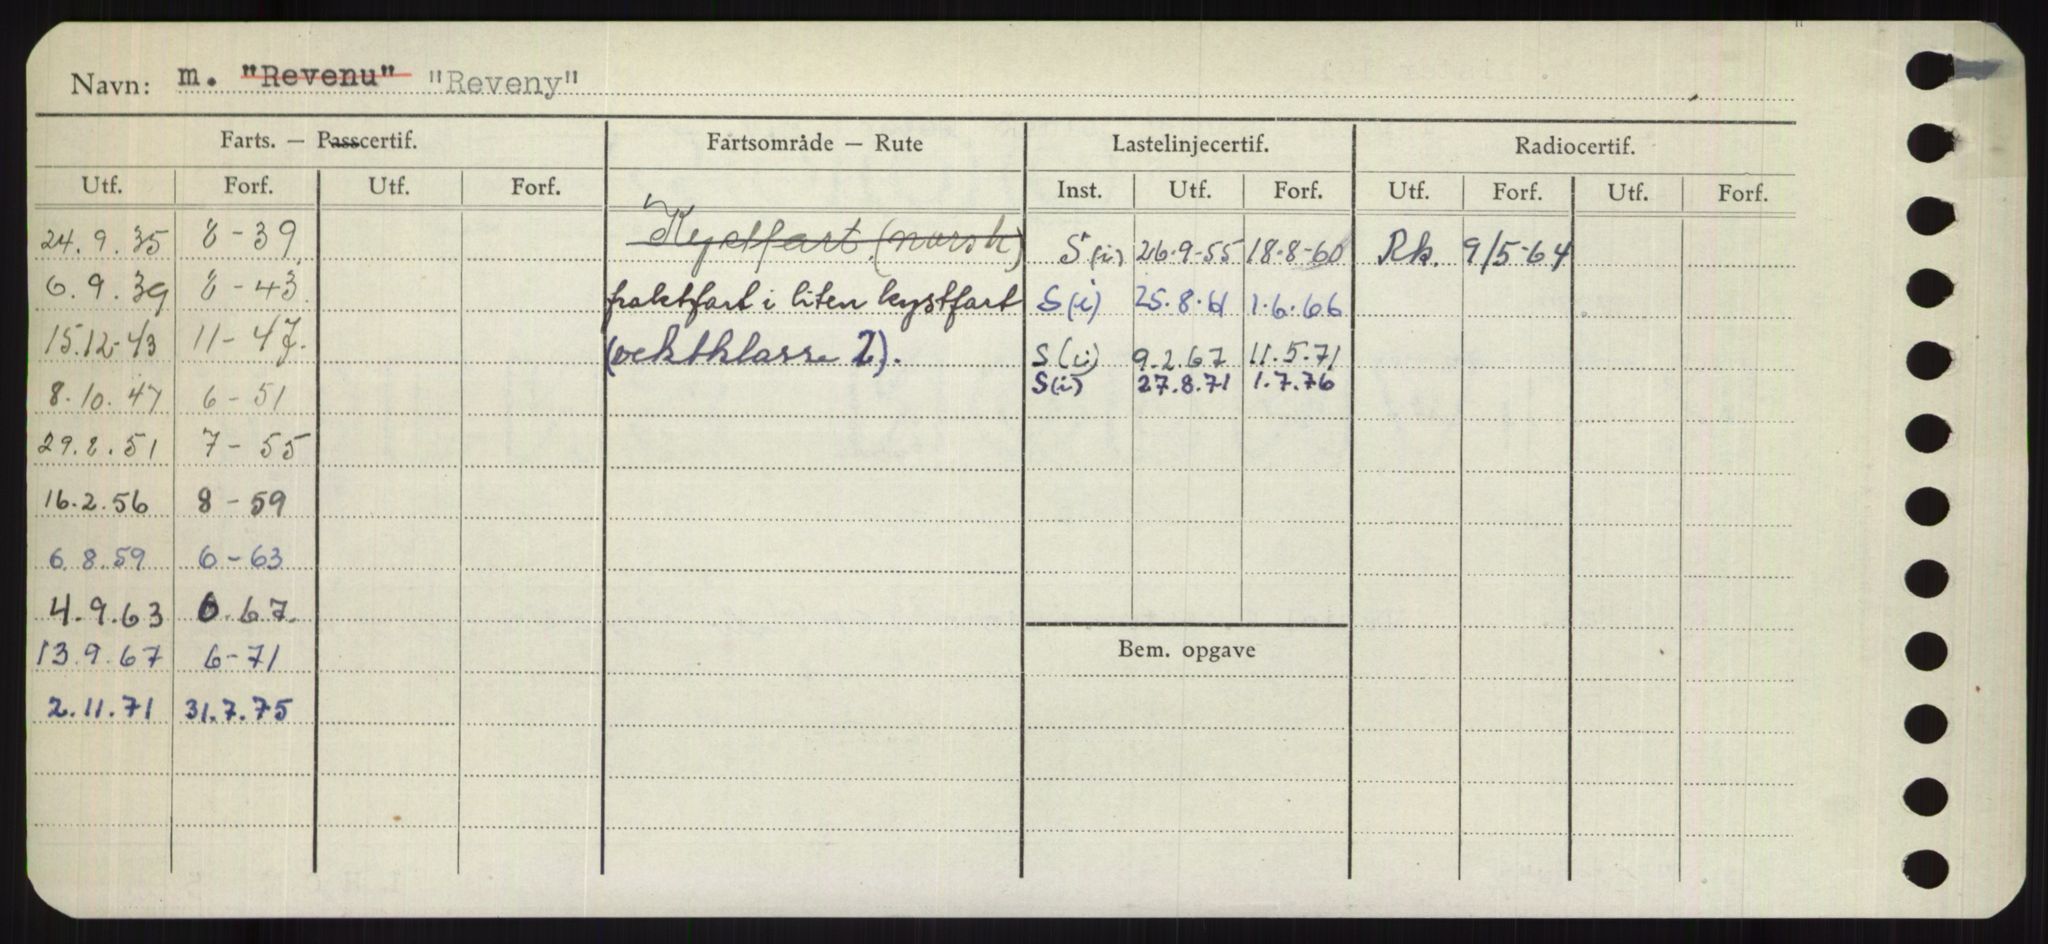 Navn: m. "Revenu" "Reveny"
Farts. — Passcertif. Fartsområde — Rute Lastelinjecertif. Radiocertif.
Utf. Forf. Utf. Forf. Inst. Utf. Forf. Utf. Forf. Utf. Forf.
24.9.35 8-39 Kystfart (norsk) S(i) 26.9-55 18.8-60 Rk. 9/5-64
6.9.39 8-43 fraktfart i liten kystfart S(i) 25.8.61 1.6.66
15.12-43 11-47. (vektklasse 2). S(i) 9.2.67 11.5.71
S(i) 27.8.71 1.7.76
8.10.47 6-51
29.8.51 7-55
16.2.56 8-59
6.8.59 6-63
4.9.63 6.67.
Bem. opgave
13.9.67 6-71
2.11.71 31.7.75